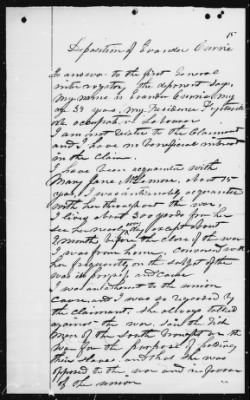 15
Deposition of Evander Currie
In answer to the first General
interrogatory, the deponent says
My name is Evander Currie my
age 53 years, my Residence
occupation a Laborer
I am not related to the Claimant
and I have no beneficial interest
in the Claim.
I have been acquainted with
Mary Jane McLemore, about 15
years, I was intimately acquainted
with her throughout the war,
I lived about 300 yards from her
see her nearly every day except about
2 months before the close of the war
I was from home. conversed with
her frequently on the subject of the
war its progress and cause
I was an adherent to the union
cause, and I was so regarded by
the claimant, She always talked
against the war, said the Rich
men of the South brought on the
war for the purpose of
their slaves. and that she was
opposed to the war and in favour
of the union